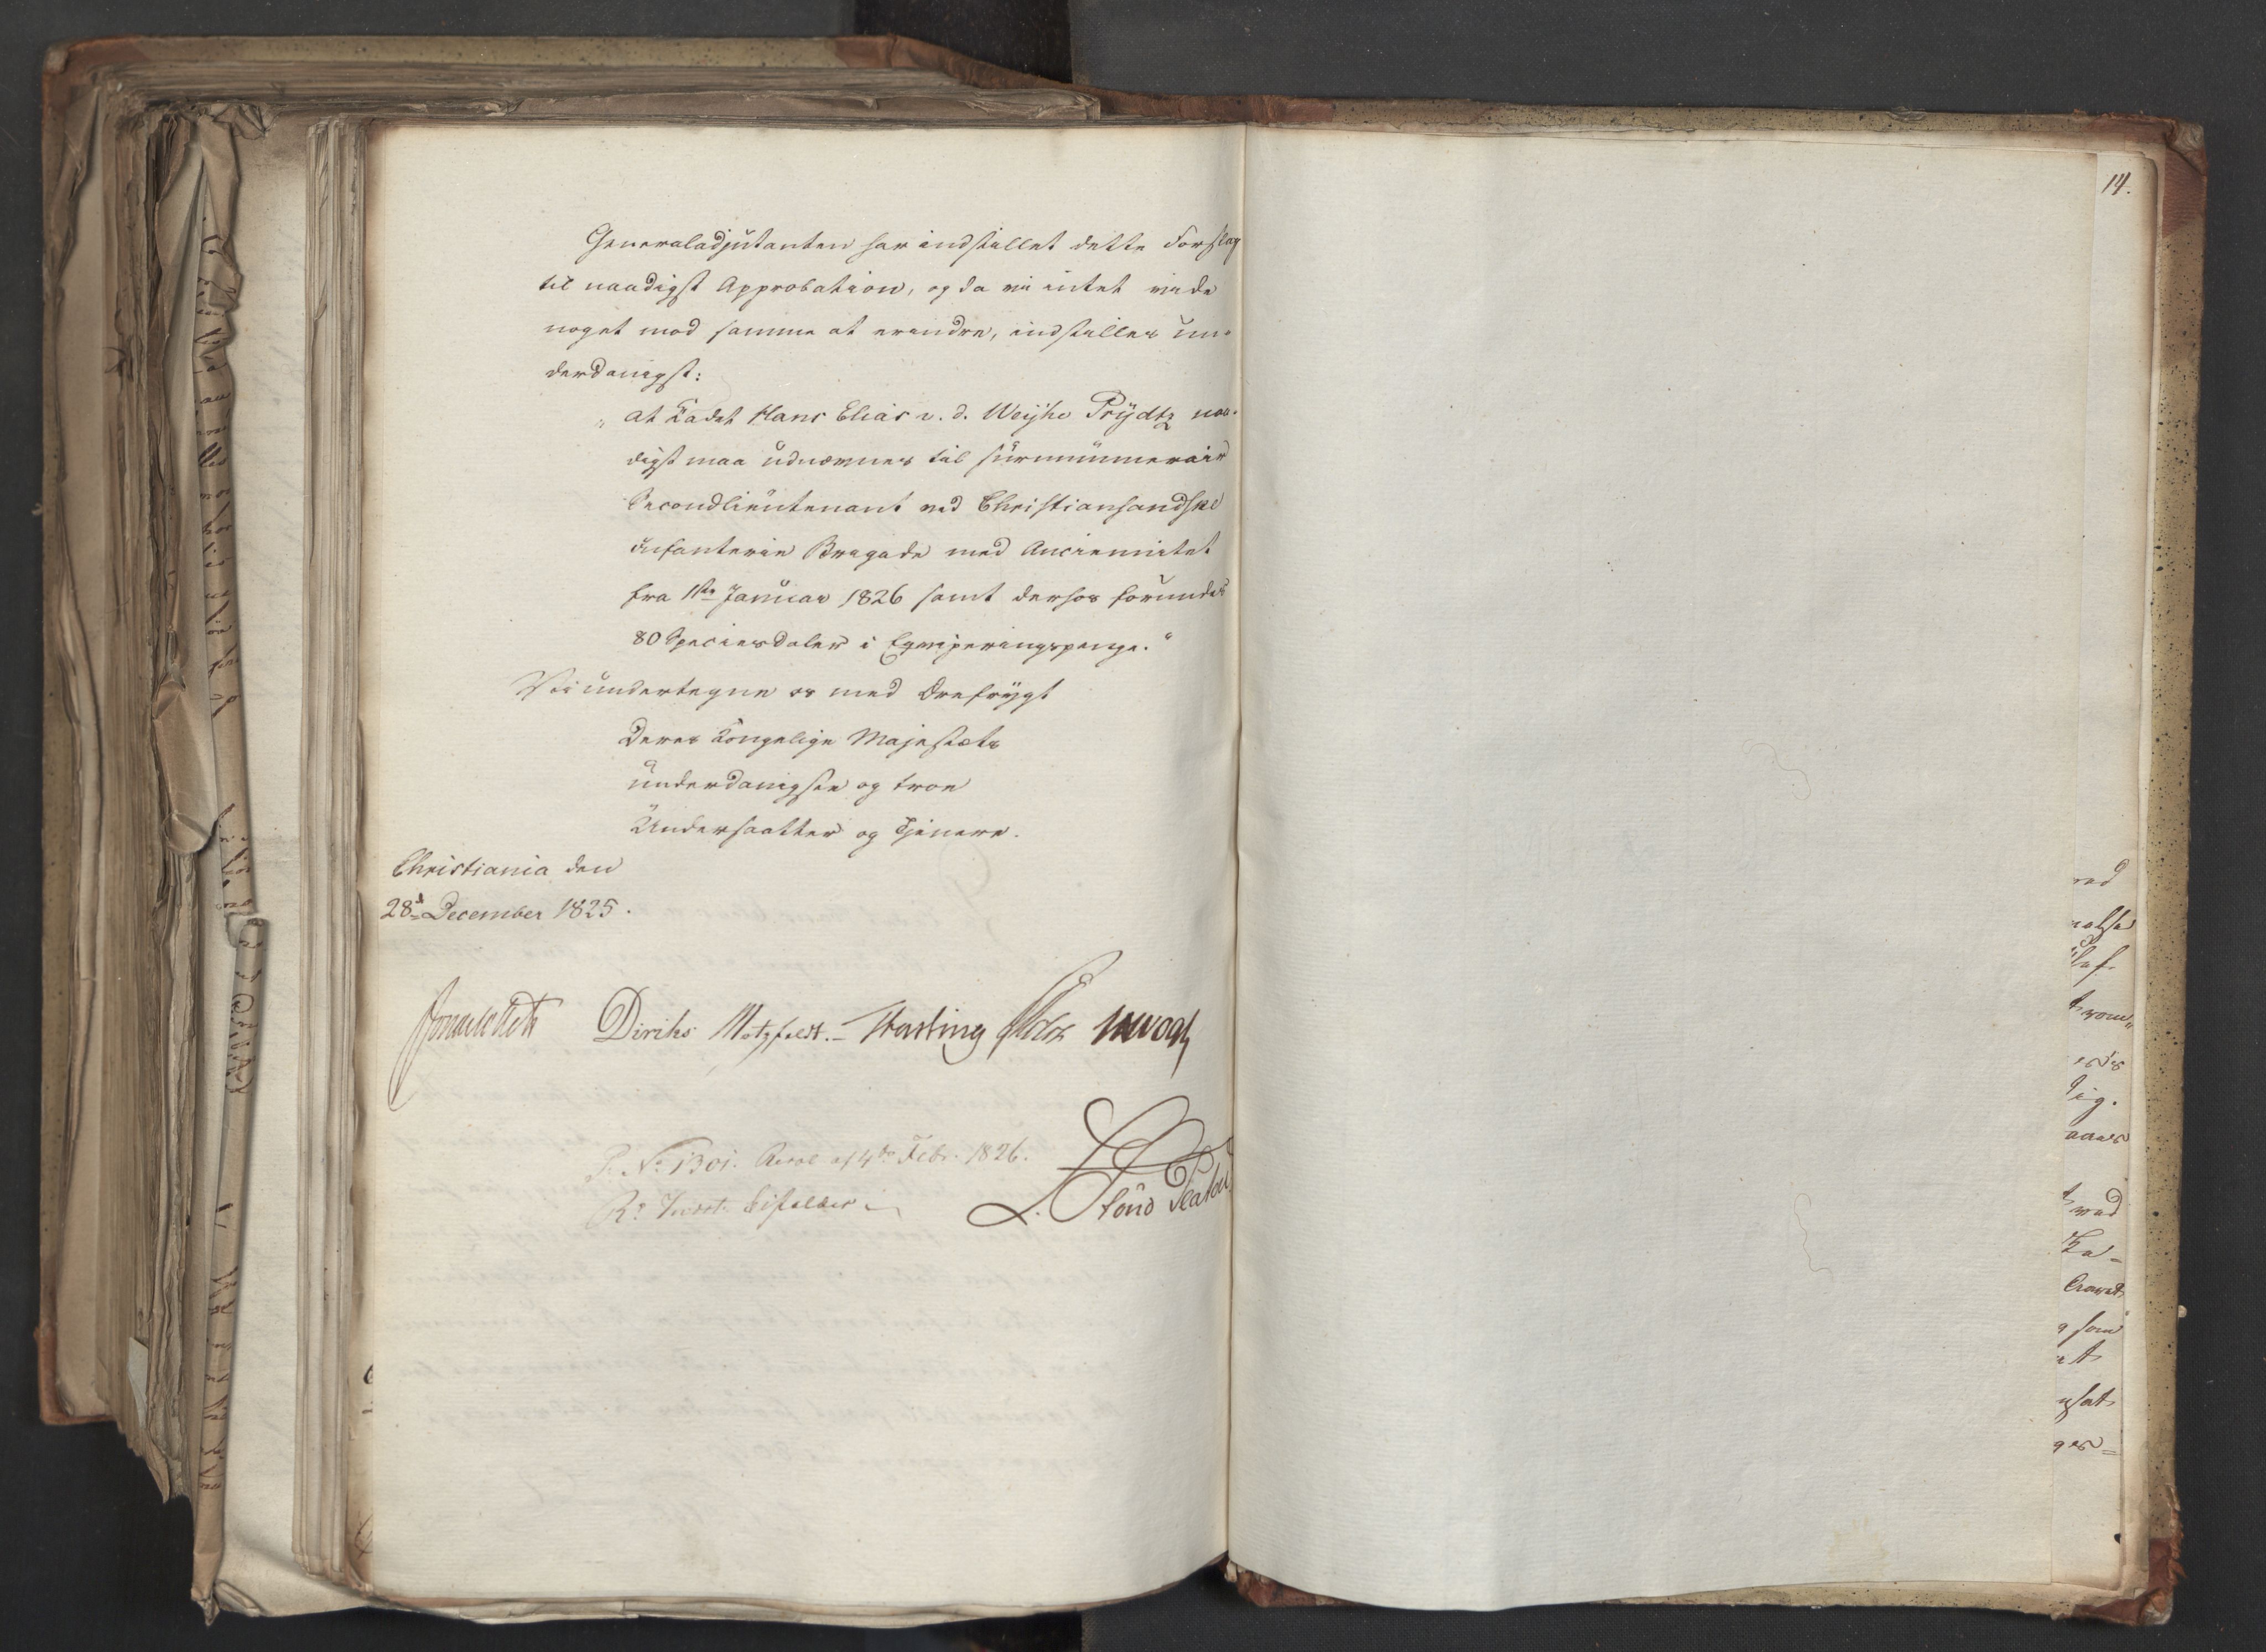 Generaladjutanten har indstillet dette Forslag
til naadigst Approbation, og da vi intet vide
noget mod samme at erindre, indstilles un-
derdanigst:
"at Kadet Hans Elias v. d. Weyhe Prydtz naa-
digst maa udnævnes til surnummerair
Secondlieutenant ved Christiansandske
Infanterie Brigade med Anciennitet
fra 1ste Januar 1826 samt derhos forundes
80 Speciesdaler i Eqviperingspenge."
Vi undertegne os med Ærefrygt
Deres Kongelige Majestæts
underdanigste og troe
Undersaatter og Tjenere.
Christiania den
28d December 1825.
Diriks Motzfeldt.- Hasting
P. No 1301. Resol af 4de Febr. 1826.
14.
ved
Ka-
som